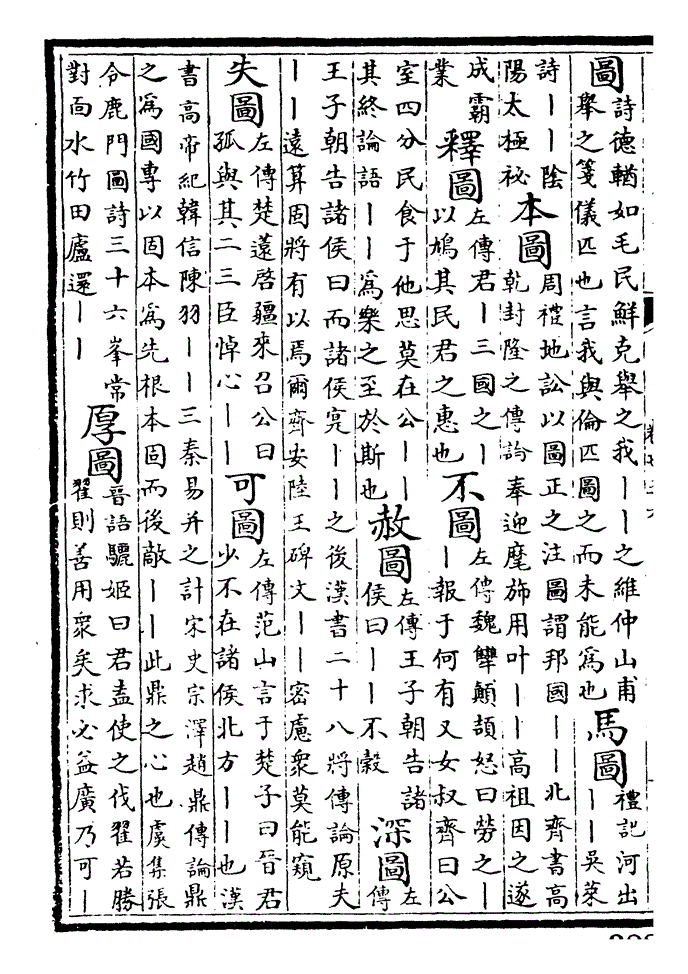 圖
詩德輶如毛民鮮克舉之我丨丨之維仲山甫
舉之箋儀匹也言我與倫匹圖之而未能爲也
馬圖
禮記河出
丨丨吳萊
詩丨丨陰
陽太極祕
本圖
周禮地訟以圖正之注圖謂邦國丨丨北齊書高
乾封隆之傳論奉迎麾斾用叶丨丨高祖因之遂
成霸
業
釋圖
左傳君丨三國之丨
以鳩其民君之惠也
不圖
左傳魏犫顛頡怒曰勞之丨
丨報于何有又女叔齊曰公
室四分民食于他思莫在公丨丨
其終論語丨丨爲樂之至於斯也
赦圖
左傳王子朝告諸
侯曰丨丨不穀
深圖
左
傳
王子朝告諸侯曰而諸侯寔丨丨之後漢書二十八將傳論原夫
丨丨遠算固將有以焉爾齊安陸王碑文丨丨密慮衆莫能窺
失圖
左傳楚薳啓疆來召公曰
孤與其二三臣悼心丨丨
可圖
左傳范山言于楚子曰晉君
少不在諸侯北方丨丨也漢
書高帝紀韓信陳羽丨丨三秦易并之計宋史宗澤趙鼎傳論鼎
之爲國專以固本爲先根本固而後敵丨丨此鼎之心也虞集張
令鹿門圖詩三十六峯常
對面水竹田廬還丨丨
厚圖
晉語驪姬曰君盍使之伐翟若勝
翟則善用衆矣求必益廣乃可丨